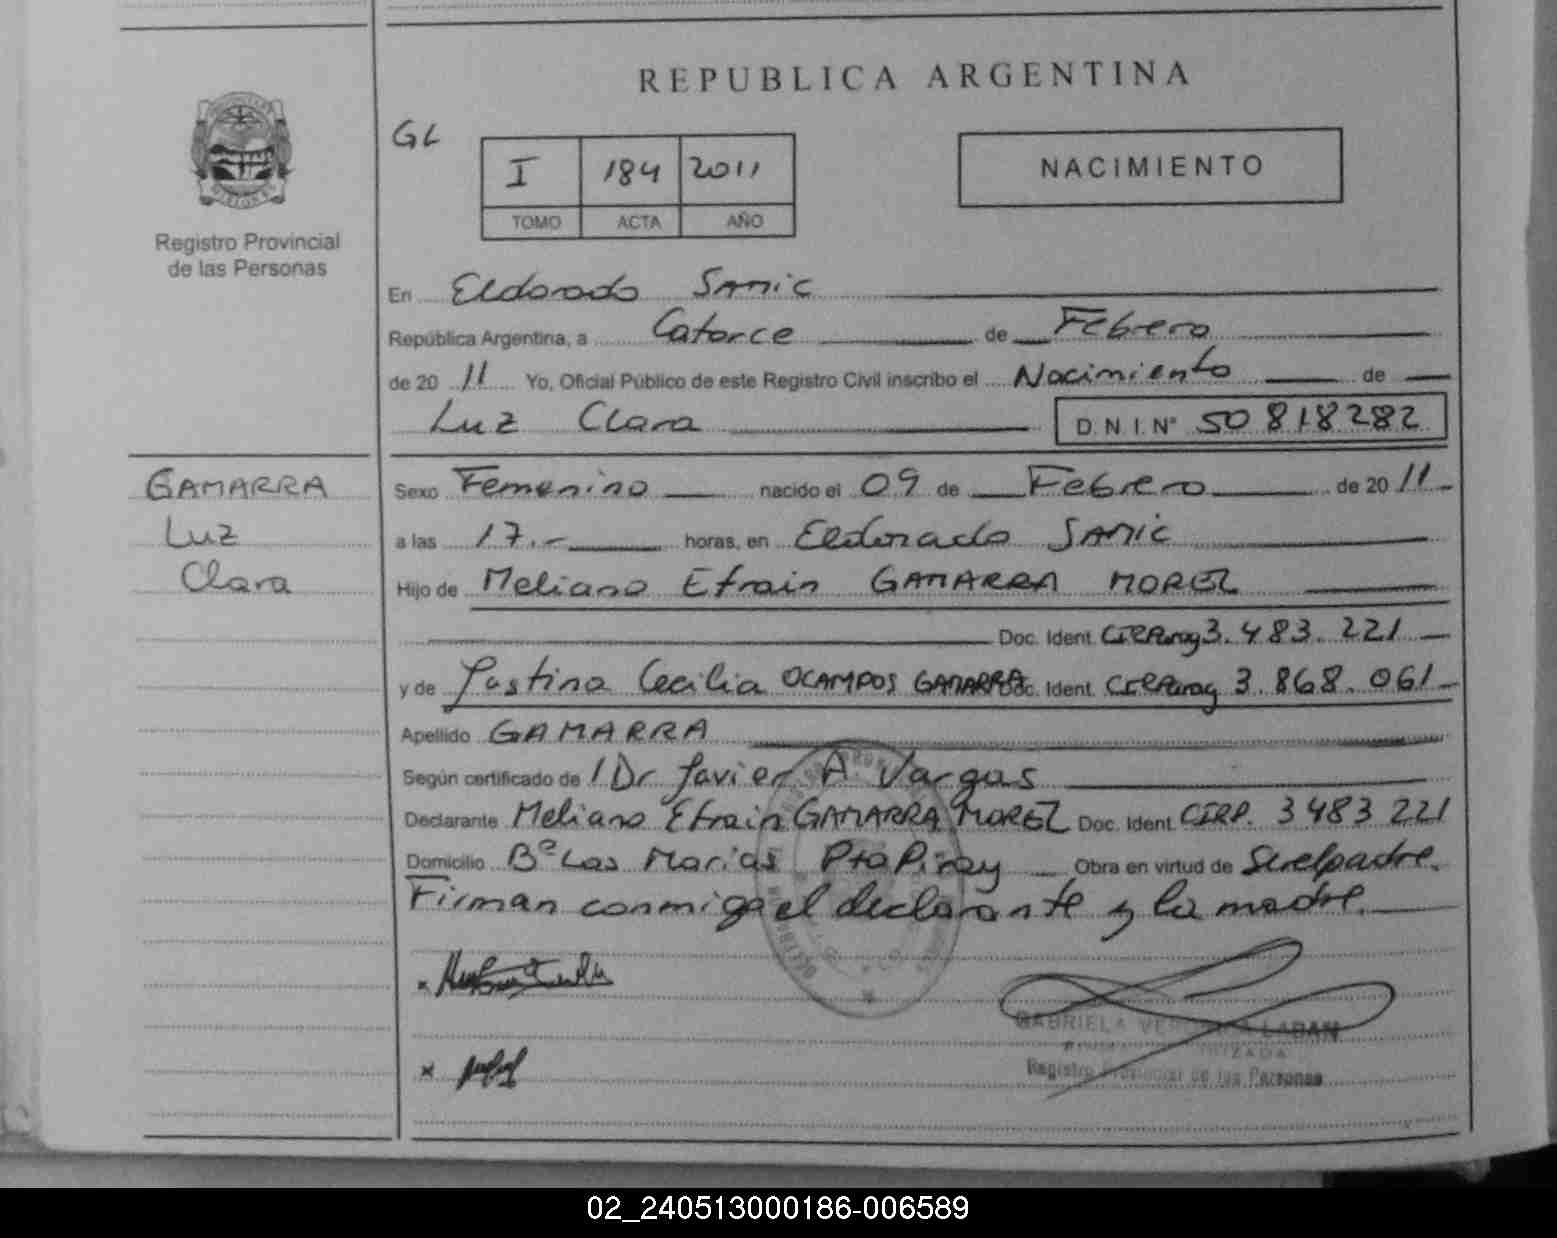 REPUBLICA ARGENTINA
GL
I 184 2011
TOMO ACTA AÑO
NACIMIENTO
Registro Provincial
de las Personas
En Eldorado SAMIC
República Argentina, a Catorce de Febrero
de 20 11 Yo, Oficial Público de este Registro Civil inscribo el Nacimiento de
Luz Clara D.N.I. N° 50 818282
GAMARRA
Luz
Clara
Sexo Femenino nacido el 09 de Febrero de 20 11
a las 17.- horas, en Eldorado SAMIC
Hijo de Meliano Efrain GAMARRA MOREL
Doc. Ident. CIRParag 3.483.221
y de Justina Cecilia OCAMPOS GAMARRA Doc. Ident. CIRParag 3.868.061
Apellido GAMARRA
Según certificado de / Dr Javier A. Vargas
Declarante Meliano Efrain GAMARRA MOREL Doc. Ident. CIRP. 3483 221
Domicilio B° Las Marias Pto Piray Obra en virtud de Ser el padre.
Firman conmigo el declarante y la madre.
GABRIELA VERONICA LABAN
Registro Provincial de las Personas
02_240513000186-006589